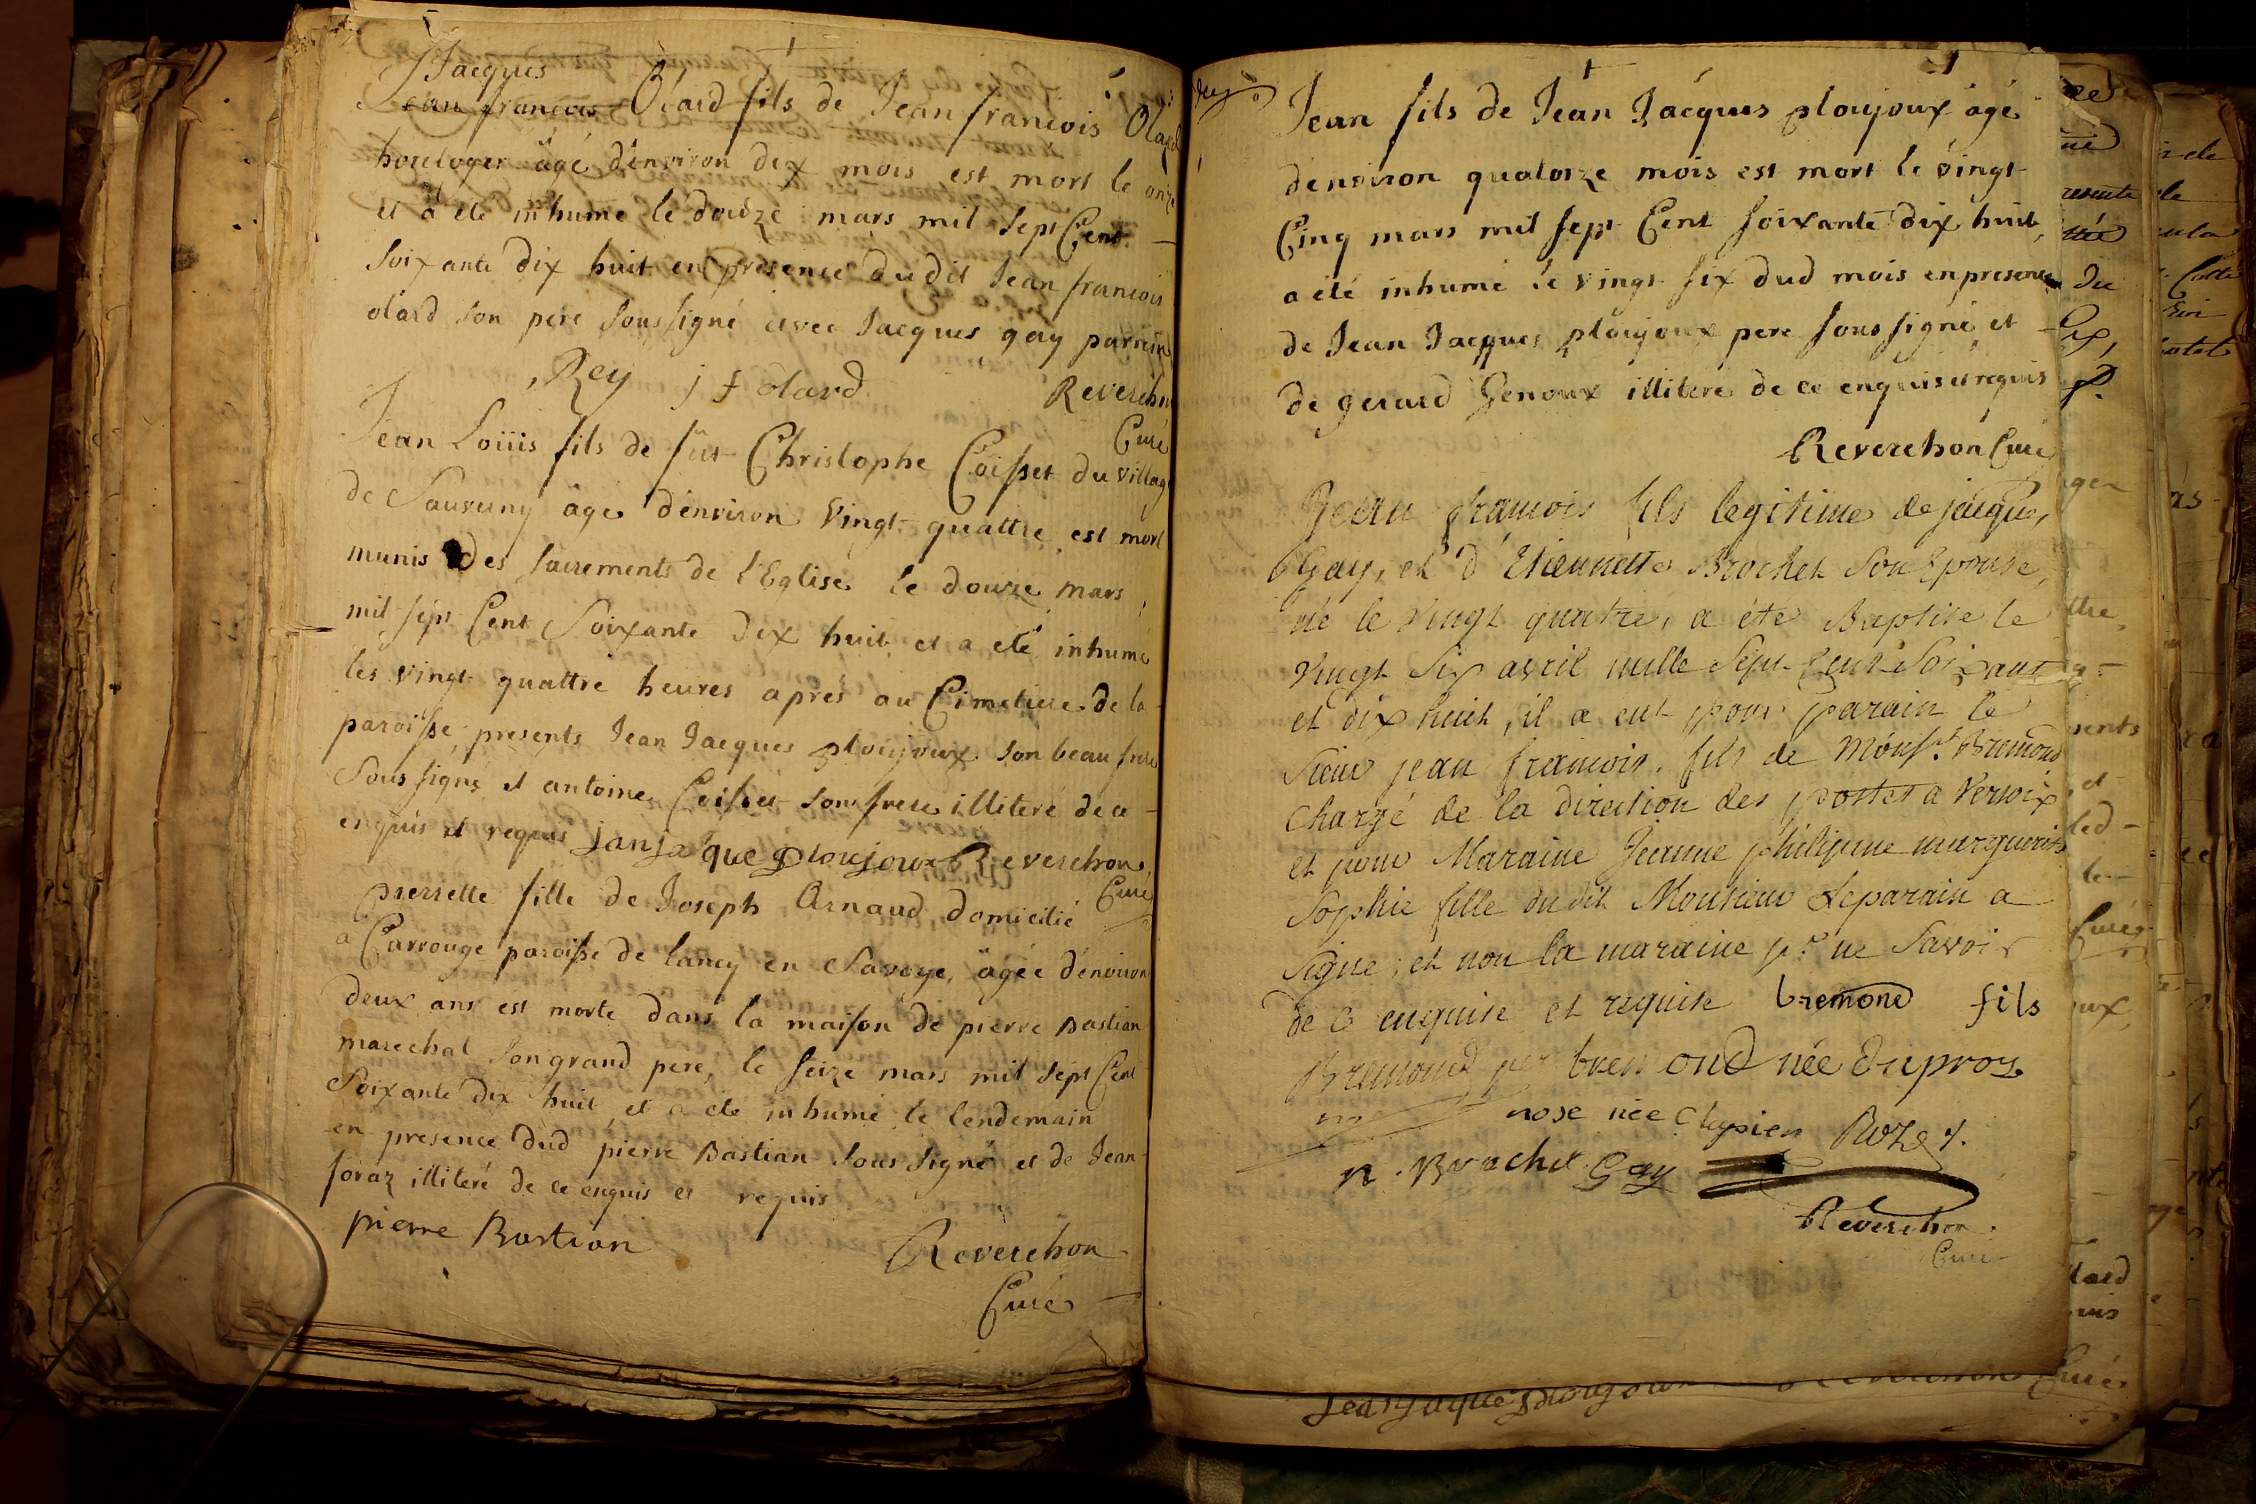 Jacques
Jean francois Olard fils de Jean francois Olard
horloger âgé d'environ dix mois est mort le onze
et a eté inhumé le douze mars mil sept Cent
Soixante dix huit en présence dudit Jean francois
olard son pere soussigné avec Jacques gay parrein
Rey j f olard Reverchon
Curé
Jean Loüis fils de fut Christophe Coisset du village
de Sauverny âgé d'environ Vingt quattre est mort
munis des sacrements de l'Eglise le douze mars
mil sept Cent Soixante dix huit et a eté inhumé
les vingt quattre heures apres au Cimetiere de la
paroisse presents Jean Jacques ploujoux son beau frere
Soussigné et antoine Coisset son frere illiteré de ce
enquis et requis janjaque Ploujoux Reverchon
Curé
pierrette fille de Joseph Arnaud domicilié
a Carrouge paroisse de lancy en Savoye, âgée d'environ
deux ans est morte dans la maison de pierre Bastian
marechal son grand pere, le seize mars mil sept Cent
Soixante dix huit et a eté inhumé le lendemain
en presence dud pierre Bastian soussigné et de Jean
foraz illiteré de ce enquis et requis
pierre Bastian Reverchon
Curé
Jean fils de Jean Jacques ploujoux âgé
denviron quatorze mois est mort le vingt
Cinq mars mil sept Cent soixante dix huit,
a eté inhumé le vingt six dud mois en presence
de Jean Jacques ploujoux pere soussigné et
de gerard Genoux illiteré de ce enquis et requis
Reverchon Curé
Jean francois fils legitime de jacques
Gay, et d'Etiennette Brochet Son Epouse,
né le vingt quatre, a éte Baptise le
vingt Six avril mille Sept Cent Soixante
et dix huit, il a eut pour parain le
Sieur jean francois fils de Monsr. Bremond
Chargé de la direction des postes a Versoix
et pour Maraine Jeanne philipine marguerite
Sophie fille du dit Monsieur Le parain a
Signe et non la maraine pr. ne Savoir
de ce enquise et requise bremond fils
Bremond per bremond née duproz
rose née Clapien Rozet.
n. Brochet Gay
Reverchon
Curé
Jean jaque Ploujoux Curé